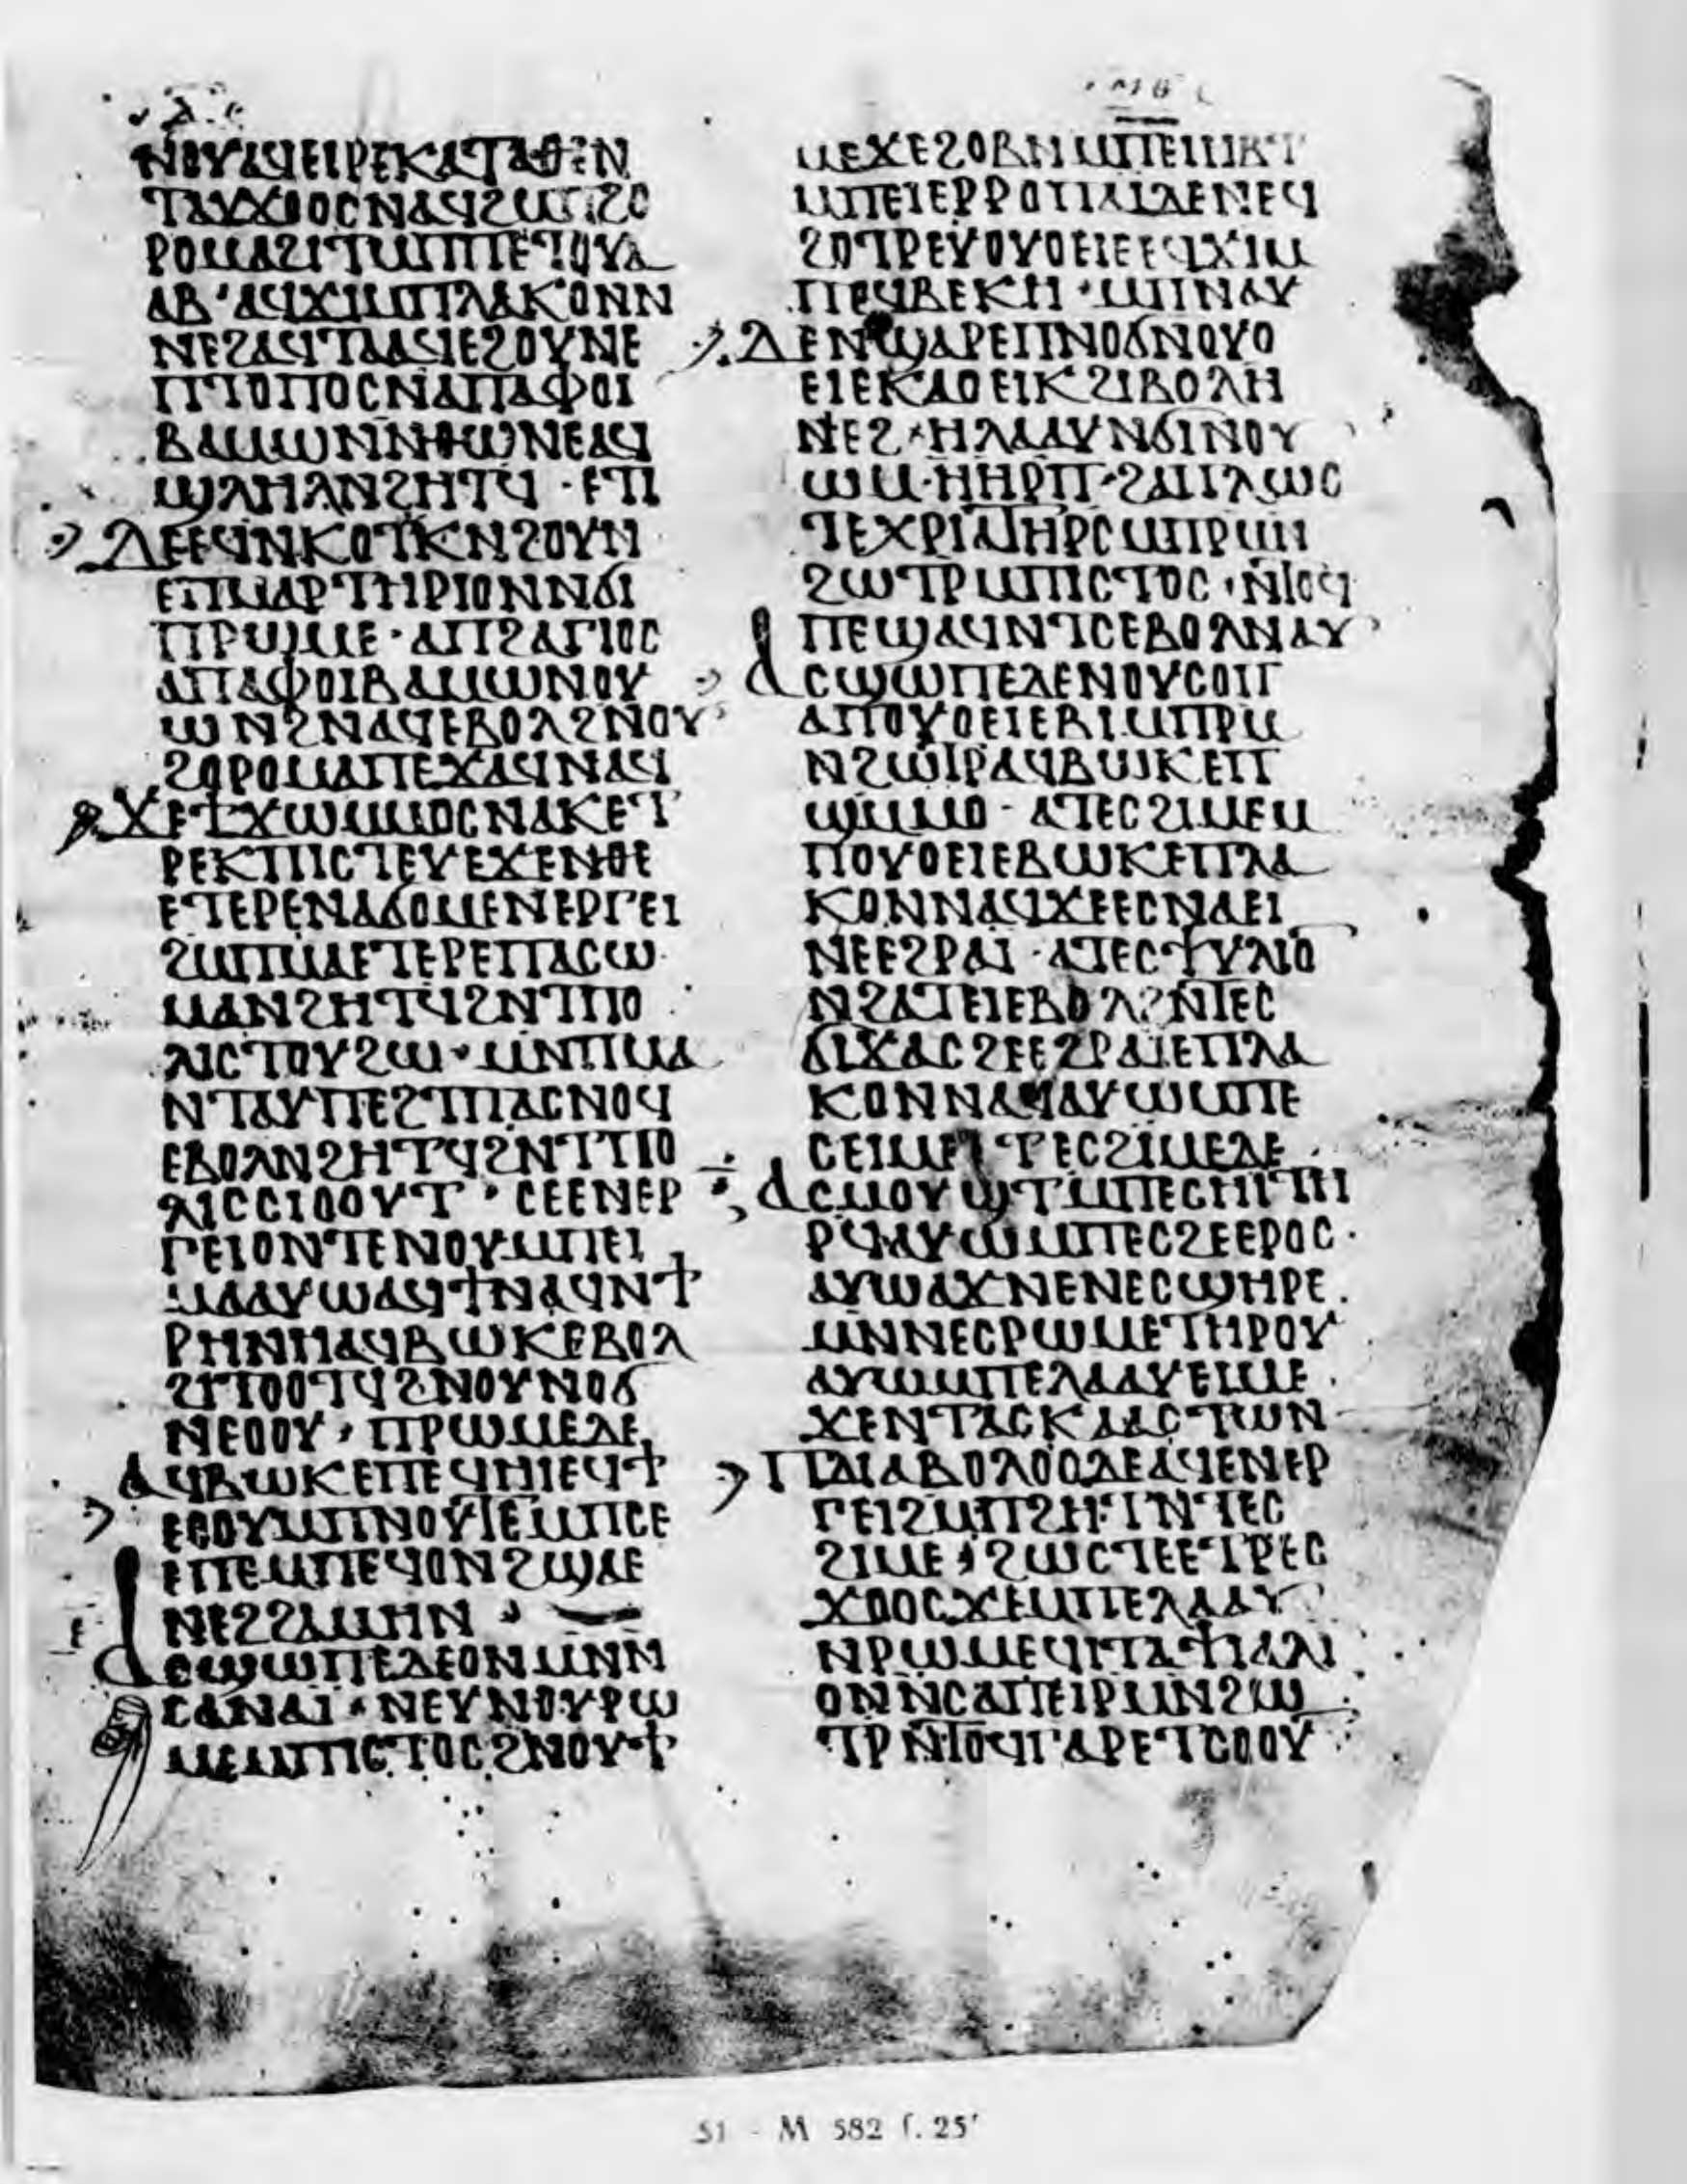 ⲚⲞⲨⲀϤⲈⲒⲢⲈⲔⲀⲦⲀⲐⲈⲚ
ⲦⲀⲨϪⲞⲞⲤⲚⲀϤϨⲘⲠϨⲞ
ⲢⲞⲘⲀϨⲒⲦⲘⲠⲠⲈⲦⲞⲨⲀ
ⲀⲂ·ⲀϤϪⲒⲘⲠⲖⲀⲔⲞⲚⲚ
ⲚⲈϨⲀϤⲦⲀⲀϤⲈϨⲞⲨⲚⲈ
ⲠⲦⲞⲠⲞⲤⲚⲀⲠⲀⲪⲞⲒ
ⲂⲀⲘⲘⲰⲚⲚⲐⲰⲚⲈⲀϤ
ϢⲖⲎⲖⲚϨⲎⲦϤ·ⲈⲦⲒ
ⲆⲈⲈϤⲚⲔⲞⲦⲔⲚϨⲞⲨⲚ
ⲈⲠⲘⲀⲢⲦⲎⲢⲒⲞⲚⲚϬⲒ
ⲠⲢⲰⲘⲈ·ⲀⲠϨⲀⲄⲒⲞⲤ
ⲀⲠⲀⲪⲞⲒⲂⲀⲘⲘⲰⲚⲞⲨ
ⲰⲚϨⲚⲀϤⲈⲂⲞⲖϨⲚⲞⲨ
ϨⲞⲢⲞⲘⲀⲠⲈϪⲀϤⲚⲀϤ
ϪⲈϮϪⲰⲘⲘⲞⲤⲚⲀⲔⲈⲦ
ⲢⲈⲔⲠⲒⲤⲦⲈⲨⲈϪⲈⲚⲐⲈ
ⲈⲦⲈⲢⲈⲚⲀϬⲞⲘⲈⲚⲈⲢⲄⲈⲒ
ϨⲘⲠⲘⲀⲈⲦⲈⲢⲈⲠⲀⲤⲰ
ⲘⲀⲚϨⲎⲦϤϨⲚⲦⲠⲞ
ⲖⲒⲤⲦⲞⲨϨⲰ·ⲘⲚⲠⲘⲀ
ⲚⲦⲀⲨⲠⲈϨⲦⲠⲀⲤⲚⲞϤ
ⲈⲂⲞⲖⲚϨⲎⲦϤϨⲚⲦⲠⲞ
ⲖⲒⲤⲤⲒⲞⲞⲨⲦ·ⲤⲈⲈⲚⲈⲢ
ⲄⲈⲒⲞⲚⲦⲈⲚⲞⲨⲘⲠⲈⲒ
ⲘⲀⲀⲨⲰⲀϤϮⲚⲀϤⲚϮ
ⲢⲎⲚⲎⲀϤⲂⲰⲔⲈⲂⲞⲖ
ϨⲒⲦⲞⲞⲦϤϨⲚⲞⲨⲚⲞϬ
ⲚⲈⲞⲞⲨ·ⲠⲢⲰⲘⲈⲆⲈ
ⲀϤⲂⲰⲔⲈⲠⲈϤⲎⲒⲈϤϮ
ⲈⲞⲞⲨⲘⲠⲚⲞⲨⲦⲈⲘⲠⲤⲈ
ⲈⲠⲈⲘⲠⲈϤⲞⲚϨϢⲀⲈ
ⲚⲈϨϨⲀⲘⲎⲚ
ⲀⲤϢⲰⲠⲈⲆⲈⲞⲚⲘⲚⲚ
ⲤⲀⲚⲀⲒ·ⲚⲈⲨⲚⲞⲨⲢⲰ
ⲘⲈⲘⲠⲒⲤⲦⲞⲤϨⲚⲞⲨϮ
ⲘⲈϪⲈϨⲞⲂⲚ
ⲘⲠⲈⲒⲈⲢ
ϨⲞⲦⲢⲈⲨⲞⲨⲞⲈⲒⲈⲈϤϪⲒⲘ
ⲠⲈϤⲂⲈⲔⲎ·ⲘⲠⲚⲀⲨ
ⲆⲈⲚϢⲀⲢⲈⲠⲚⲞϬⲚⲞⲨⲞ
ⲈⲒⲈⲔⲀⲞⲈⲒⲔϨⲒⲂⲞⲖⲎ
ⲚⲈϨ·ⲎⲖⲀⲀⲨⲚϬⲒⲚⲞⲨ
ⲰⲘ·ⲎⲎⲢⲠ·ϨⲀⲠⲖⲰⲤ
ⲦⲈⲬⲢⲒⲀⲦⲎⲢⲤⲘⲠⲢⲘⲚ
ϨⲰⲦⲢⲘⲠⲒⲤⲦⲞⲤ·ⲚⲦⲞϤ
ⲠⲈϢⲀϤⲚⲦⲤⲈⲂⲞⲖⲚⲀⲨ
ⲀⲤϢⲰⲠⲈⲆⲈⲚⲞⲨⲤⲞⲠ
ⲀⲠⲞⲨⲞⲈⲒⲈⲂⲒⲘⲠⲢⲘ
ⲚϨⲰⲦⲢⲀϤⲂⲰⲔⲈⲠ
ϢⲘⲘⲞ·ⲀⲦⲈⲤϨⲒⲘⲈⲘ
ⲠⲞⲨⲞⲈⲒⲈⲂⲰⲔⲈⲠⲖⲀ
ⲔⲞⲚⲚⲀϤϪⲈⲈⲤⲚⲀⲈⲒ
ⲚⲈⲈϨⲢⲀⲒ·ⲀⲦⲈⲤⲮⲨⲖⲖⲞ
ⲚϨⲀⲦⲈⲒⲈⲂⲞⲖϨⲚⲦⲈⲤ
ϬⲒϪⲀⲤϨⲈⲈϨⲢⲀⲒⲈⲠⲖⲀ
ⲔⲞⲚⲚⲀϤⲀⲨⲰⲘⲠⲈ
ⲤⲈⲒⲘⲈ·ⲦⲈⲤϨⲒⲘⲈⲆⲈ
ⲀⲤⲘⲞⲨϢⲦⲘⲠⲈⲤⲎⲒⲦⲎ
ⲢϤⲀⲨⲰⲘⲠⲈⲤϨⲈⲈⲢⲞⲤ·
ⲀⲨⲰⲀϪⲚⲈⲚⲈⲤϢⲎⲢⲈ
ⲘⲚⲚⲈⲤⲢⲰⲘⲈⲦⲎⲢⲞⲨ
ⲀⲨⲰⲘⲠⲈⲖⲀⲀⲨⲈⲒⲘⲈ
ϪⲈⲚⲦⲀⲤⲔⲀⲀⲤⲦⲰⲚ
ⲠⲆⲒⲀⲂⲞⲖⲞⲤⲆⲈⲀϤⲈⲚⲈⲢ
ⲄⲈⲒϨⲘⲠϨⲎⲦⲚⲦⲈⲤ
ϨⲒⲘⲈ·ϨⲰⲤⲦⲈⲈⲦⲢⲈⲤ
ϪⲞⲞⲤϪⲈⲘⲠⲈⲖⲀⲀⲨ
ⲚⲢⲰⲘⲈϤⲒⲦⲀⲮⲒⲀⲖⲒ
ⲞⲚⲚⲤⲀⲠⲈⲒⲢⲘⲚϨⲰ
ⲦⲢⲚⲦⲞϤⲄⲀⲢⲈⲦⲤⲞⲞⲨ
51 - M 582 f. 25'